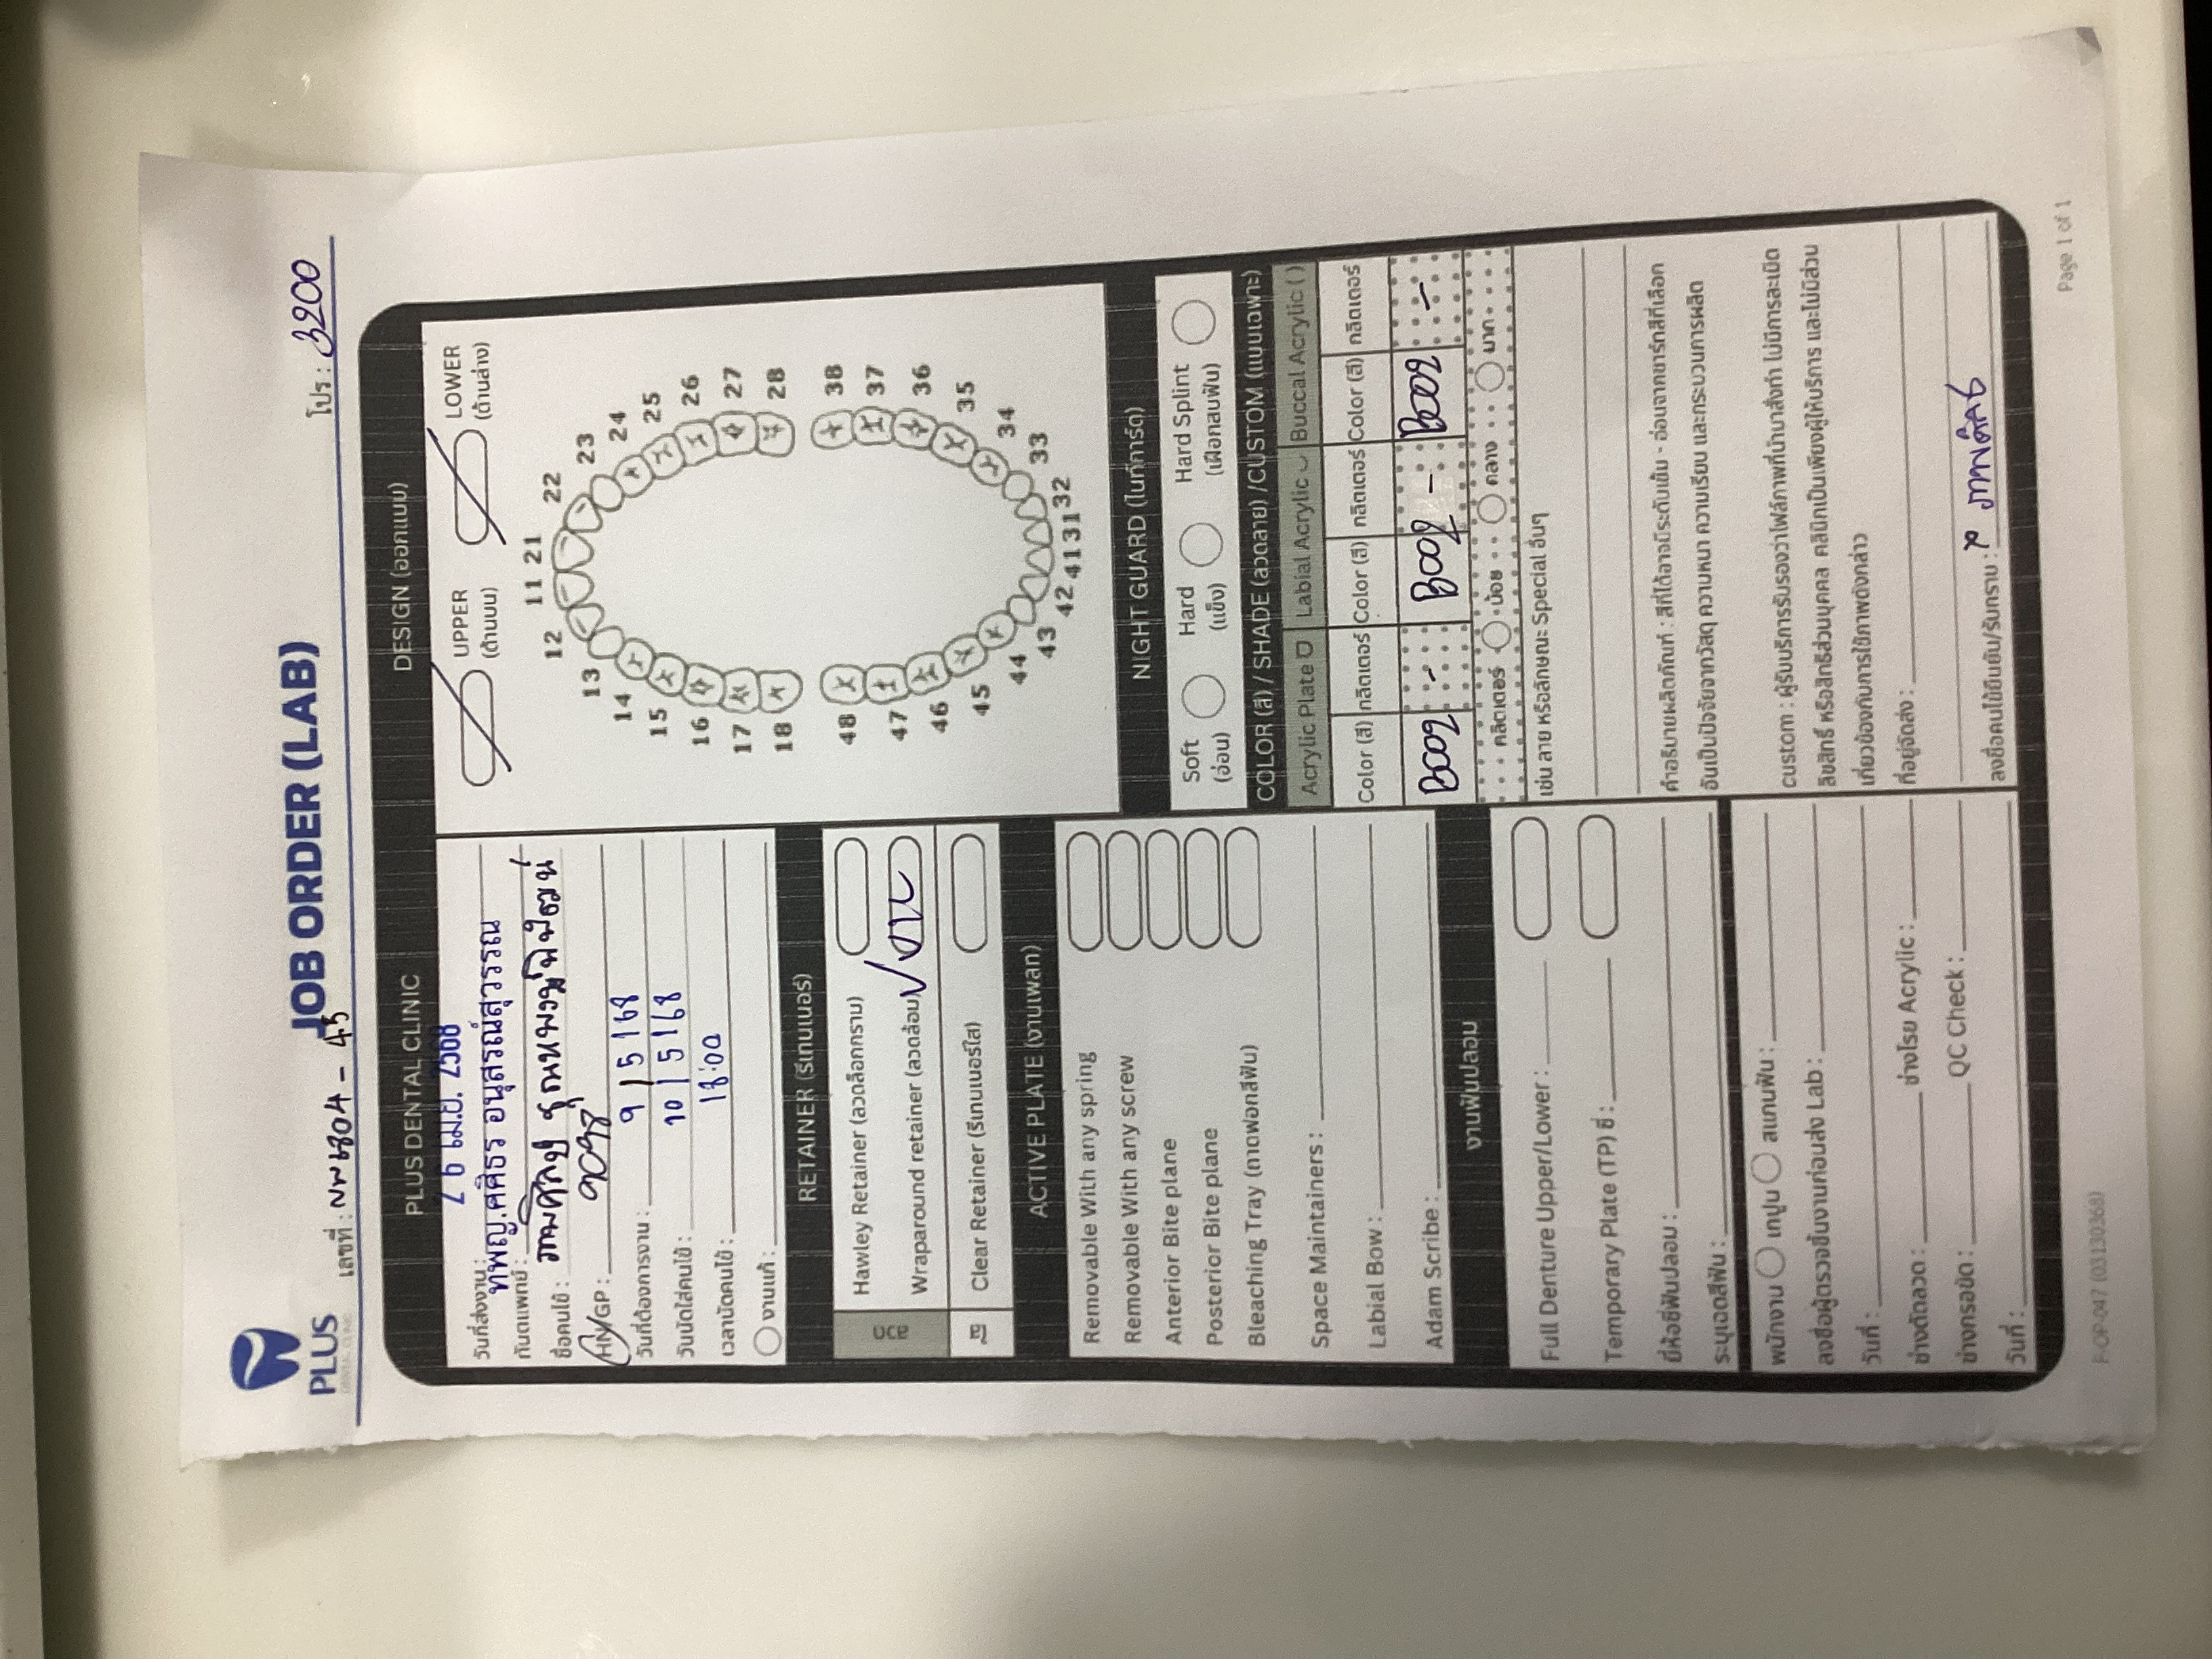 PLUS
DENTAL CLINIC
JOB ORDER (LAB)
เลขที่ : 6804 - 45
โปร : 3200
PLUS DENTAL CLINIC
วันที่ส่งงาน : 26 เม.ย. 2568
ทันตแพทย์ : ทพญ.ศศิธร อนุสรณ์สุวรรณ
ชื่อคนไข้ : ภาพศิลป์
HN/GP : 9098
วันที่ต้องการงาน : 9/5/68
วันนัดใส่คนไข้ : 10/5/68
เวลานัดคนไข้ : 18:00
งานแก้ :
RETAINER (รีเทนเนอร์)
ลวด
Hawley Retainer (ลวดล็อกกราม)
Wraparound retainer (ลวดล้อม) บน
ใส
Clear Retainer (รีเทนเนอร์ใส)
ACTIVE PLATE (งานเพลท)
Removable With any spring
Removable With any screw
Anterior Bite plane
Posterior Bite plane
Bleaching Tray (ถาดฟอกสีฟัน)
Space Maintainers :
Labial Bow :
Adam Scribe :
งานฟันปลอม
Full Denture Upper/Lower :
Temporary Plate (TP) ซี่ :
ยี่ห้อซี่ฟันปลอม :
ระบุเฉดสีฟัน :
พนักงาน เทปูน สแกนฟัน :
ลงชื่อผู้ตรวจชิ้นงานก่อนส่ง Lab :
วันที่ :
ช่างดัดลวด : ช่างโรย Acrylic :
ช่างกรอขัด : QC Check :
วันที่ :
DESIGN (ออกแบบ)
UPPER LOWER
(ด้านบน) (ด้านล่าง)
11 21
12 22
13 23
14 24
15 25
16 26
17 27
18 28
48 38
47 37
46 36
45 35
44 34
43 33
42 41 31 32
NIGHT GUARD (ไนท์การ์ด)
Soft Hard Hard Splint
(อ่อน) (แข็ง) (เฝือกสบฟัน)
COLOR (สี) / SHADE (ลวดลาย) /CUSTOM (แบบเฉพาะ)
Acrylic Plate Labial Acrylic Buccal Acrylic ( )
Color (สี) กลิตเตอร์ Color (สี) กลิตเตอร์ Color (สี) กลิตเตอร์
B002 - B002 - B002 -
กลิตเตอร์ น้อย กลาง มาก
เช่น ลาย หรือลักษณะ Special อื่นๆ
คำอธิบายผลิตภัณฑ์ : สีที่ได้อาจมีระดับเข้ม - อ่อนจากชาร์ทสีที่เลือก
อันเป็นปัจจัยจากวัสดุ ความหนา ความเรียบ และกระบวนการผลิต
custom : ผู้รับบริการรับรองว่าไฟล์ภาพที่นำมาสั่งทำ ไม่มีการละเมิด
ลิขสิทธิ์ หรือสิทธิส่วนบุคคล คลินิกเป็นเพียงผู้ให้บริการ และไม่มีส่วน
เกี่ยวข้องกับการใช้ภาพดังกล่าว
ที่อยู่จัดส่ง :
ลงชื่อคนไข้ยืนยัน/รับทราบ : ภาพศิลป์
F-OP-047 (03130368)
Page 1 of 1